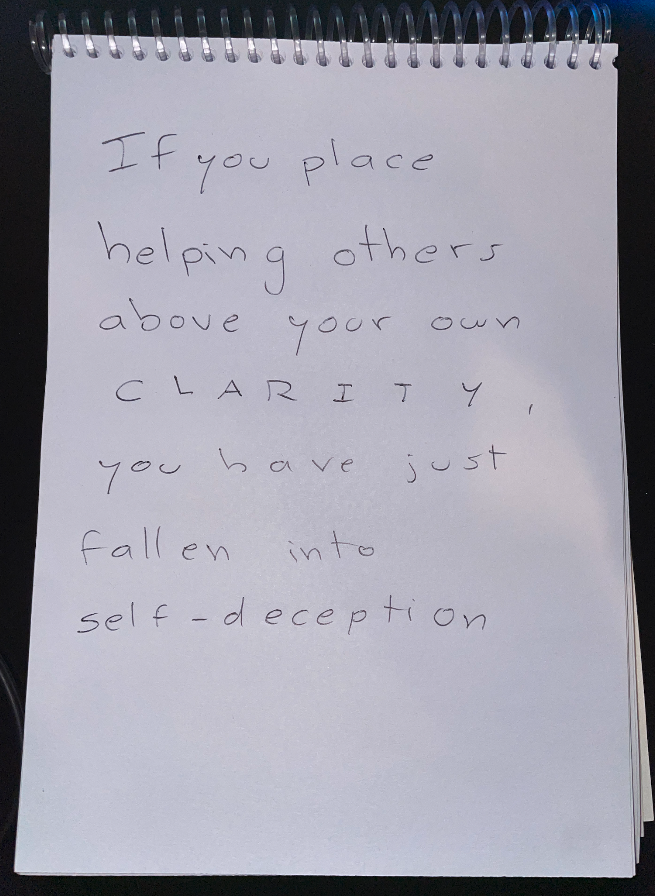 If you place
helping others
above your own
CLARITY,
you have just
fallen into
self-deception